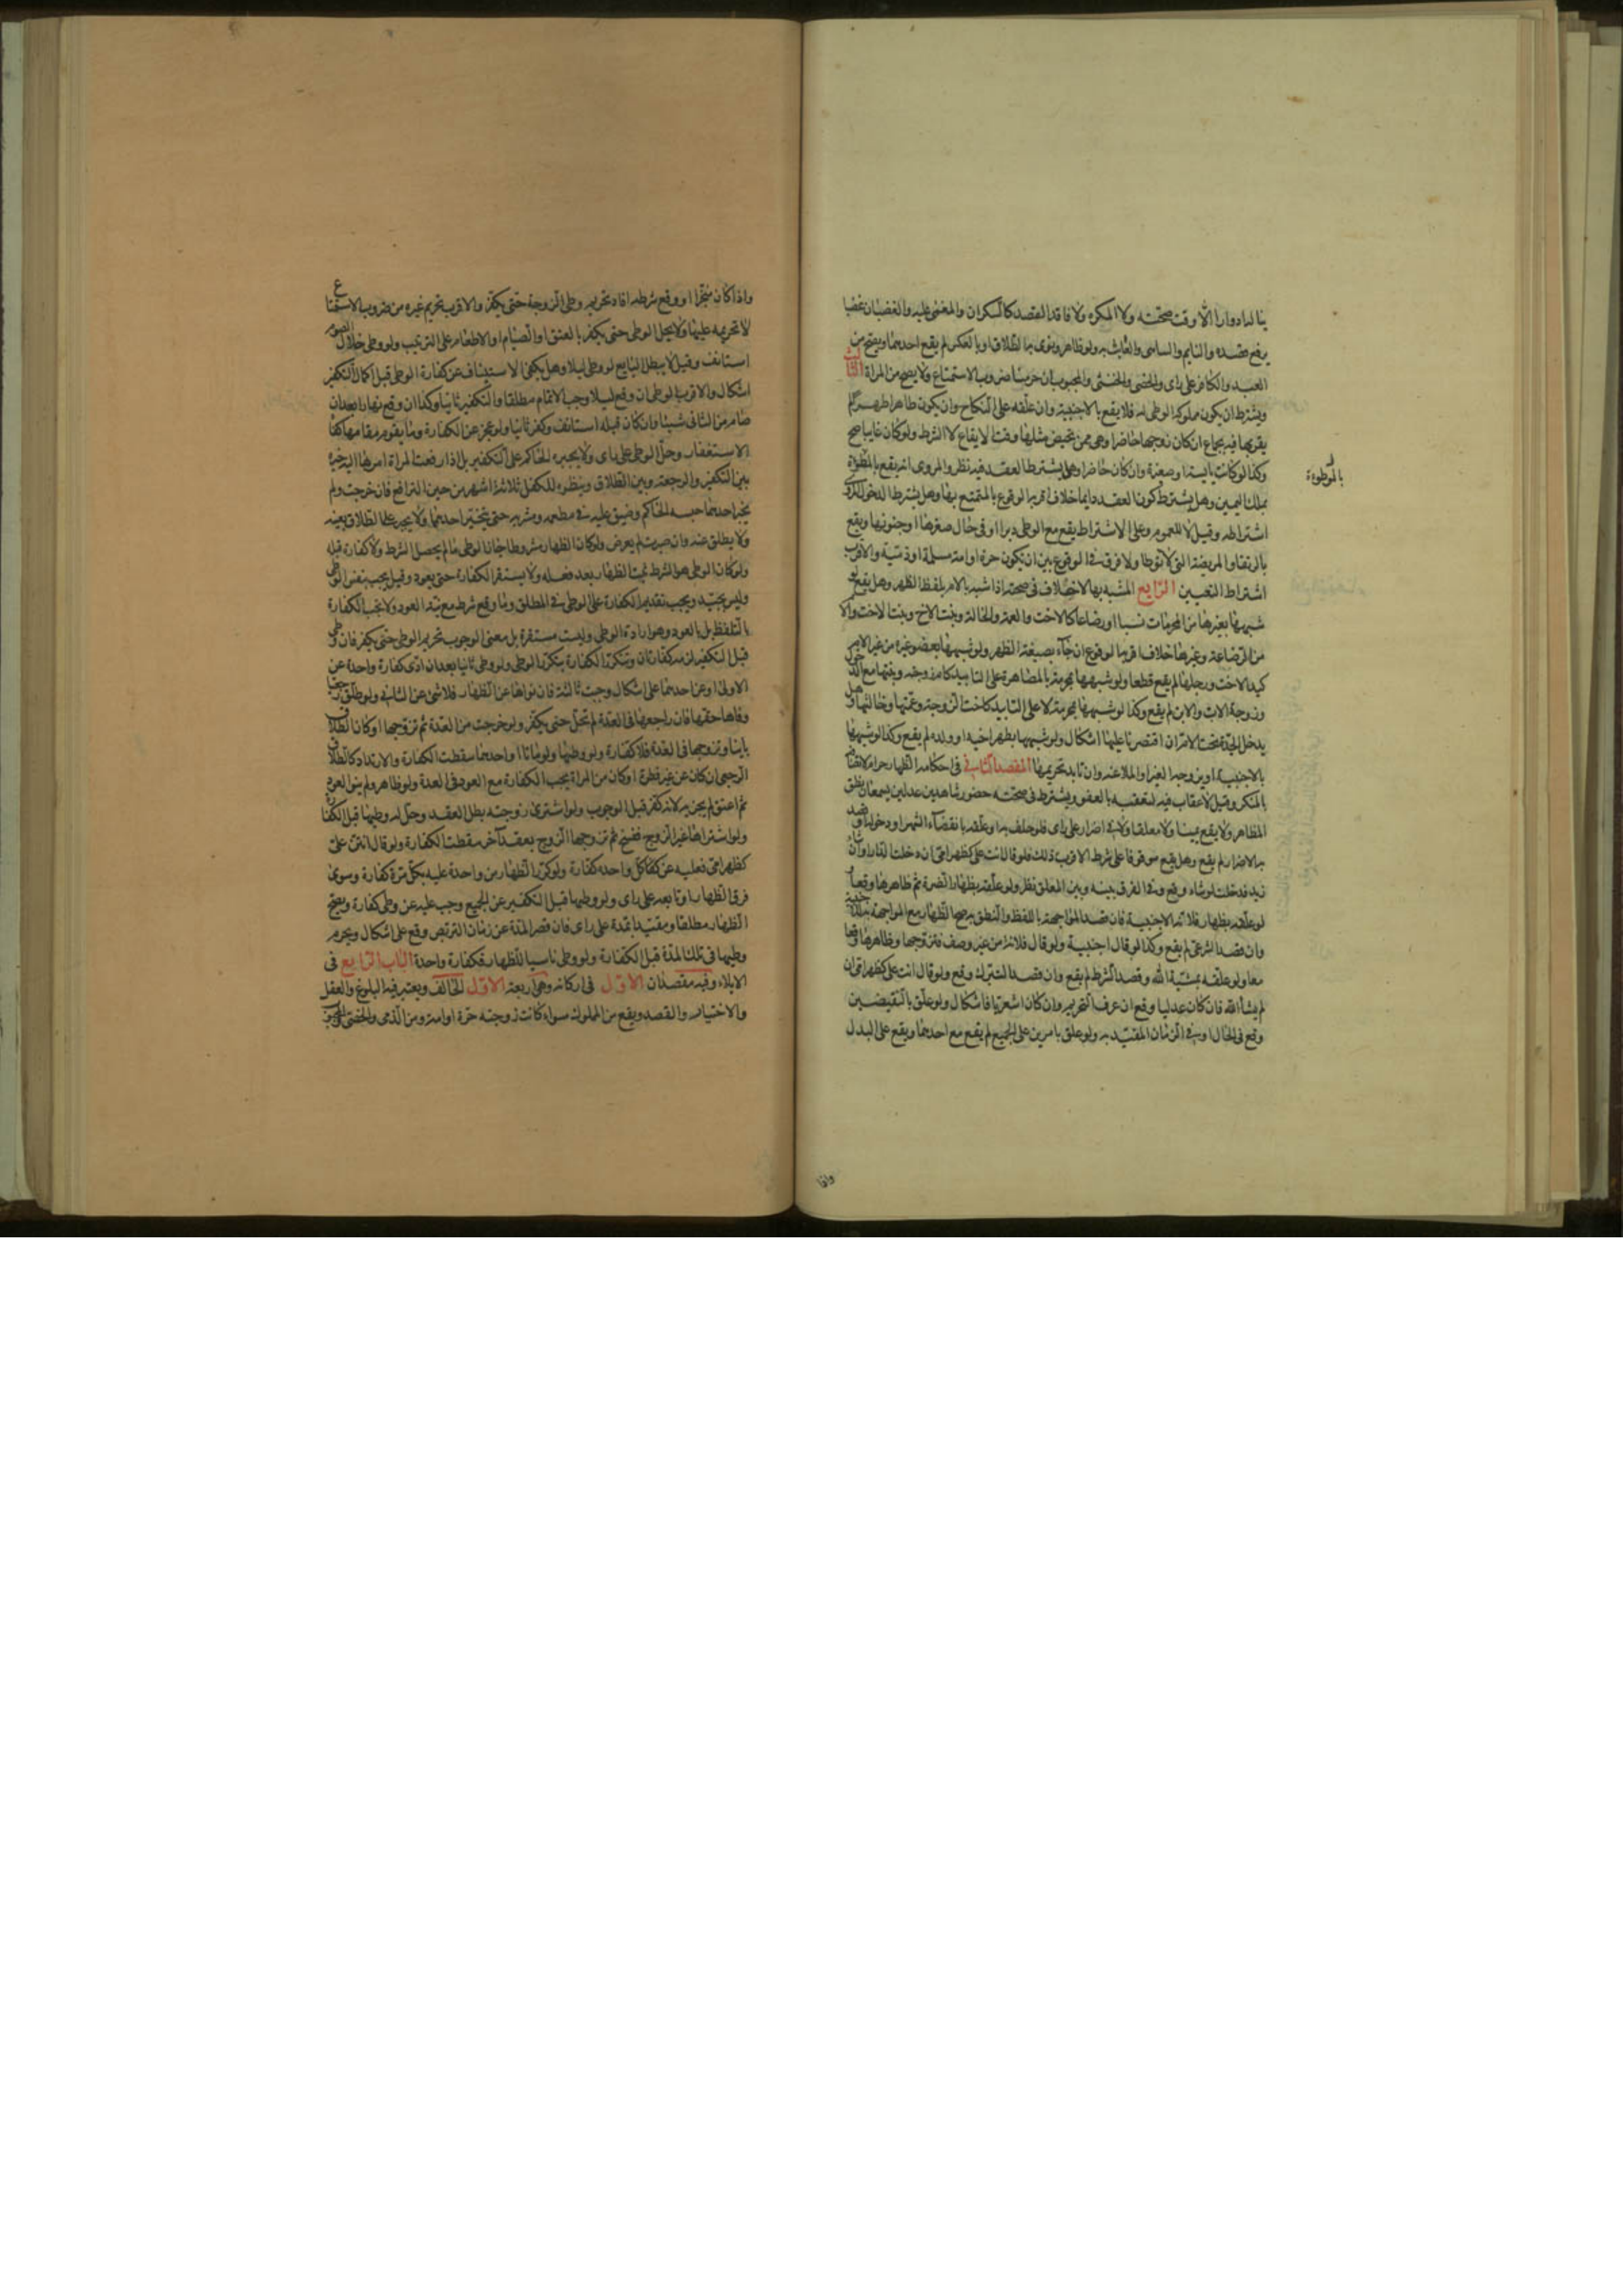 ينالها دوارا الا وقت صحته ولا المكره ولا فاقد القصد كالسكران والمغمى عليه والغضبان غضبا
يرفع قصده والنايم والساهى والعابث به ولو ظاهر ونوى به الطلاق او بالعكس لم يقع احدهما ويصح من
العبد والكافر على راى والخصى والخنثى والمجبوب ان حرمنا ضروب الاستمتاع ولا يصح من المراة الثالث
ويشترط ان يكون مملوكة الوطى له فلا يقع بالاجنبية وان علقه على النكاح وان يكون طاهرا طهرا لم
يقربها فيه بجماع ان كان زوجها حاضرا وهى ممن تحيض مثلها وقت الايقاع لا الشرط ولو كان غايبا صح
وكذا لو كانت يايسة او صغيرة وان كان حاضرا وهل يشترط العقد فيه نظر والمروى انه يقع بالموطوءة
بالموطوءة
بملك اليمين وهل يشترط كون العقد دايما خلاف اقربه الوقوع بالمتمتع بها وهل يشترط الدخول المروى
اشتراطه وقيل لا للعموم وعلى الاشتراط يقع مع الوطى دبرا او فى حال صغرها او جنونها ويقع
بالرتقاء والمريضة التى لا توطا ولا فرق فى الوقوع بين ان يكون حرة او امة مسلمة او ذمية والاقرب
اشتراط التعيين الرابع المشبه بها لا خلاف فى صحته اذا شبه بالام بلفظ الظهر وهل يقع لو
شبهها بغيرها من المحرمات نسبا او رضاعا كالاخت والعمة والخالة وبنت الاخ وبنت الاخت والام
من الرضاعة وغيرها خلاف اقربه الوقوع ان جآء بصيغة الظهر ولو شبهها بعضو غيره من غير الام
كيد الاخت ورجلها لم يقع قطعا ولو شبهها بمحرمة بالمصاهرة على التابيد كام زوجته وبنتها مع الدخول
وزوجة الاب والابن لم يقع وكذا لو شبهها بمحرمة لا على التابيد كاخت الزوجة وعمتها وخالتها وهل
يدخل الجدة تحت الام ان اقتصرنا عليها اشكال ولو شبهها بظهر اخيه او ولده لم يقع وكذا لو شبهها
بالاجنبية او بزوجة الغير او الملاعنة وان تابد تحريمها المقصد الثانى فى احكامه الظهار حرام لاتصافه
بالمنكر وقيل لا عقاب فيه لتعقبه بالعفو ويشترط فى صحته حضور شاهدين عدلين يسمعان نطق
المظاهر ولا يقع يمينا ولا معلقا ولا فى اضرار على راى فلو حلف به او علقه بانقضآء الشهر او دخوله او قصد
به الاضرار لم يقع وهل يقع موقوفا على شرط الاقرب ذلك فلو قال انت على كظهر امى ان دخلت الدار او ان شاء
زيد فدخلت او شاء وقع وفى الفرق بينه وبين المعلق نظر ولو علقه بظهار الضرة ثم ظاهرها وقعا و
لو علقه بظهار فلانة الاجنبية فان قصد المواجهة باللفظ والنطق به صح الظهار مع المواجهة به للاجنبية
وان قصد الشرعى لم يقع وكذا لو قال اجنبية ولو قال فلانة من غير وصف فتزوجها وظاهرها وقعا
معا ولو علقه بمشية الله وقصد الشرط لم يقع وان قصد التبرك وقع ولو قال انت على كظهر امى ان
لم يشأ الله فان كان عدليا وقع ان عرف التحريم وان كان اشعريا فاشكال ولو علق بالنقيضين
وقع فى الحال او فى الزمان المقيد به ولو علق بامرين على الجميع لم يقع مع احدهما ويقع على البدل
واذا
واذا كان منجزا او وقع شرطه افاد تحريم وطى الزوجة حتى يكفر والاقرب تحريم غيره من ضروب الاستمتاع
لا تحريمه عليها ولا يحل الوطى حتى يكفر بالعتق او الصيام او الاطعام على الترتيب ولو وطى خلال الصوم
استانف وقيل لا يبطل التتابع لو وطى ليلا وهل يكفى الاستيناف عن كفارة الوطى قبل اكمال التكفير
اشكال والاقرب الوطى ان وقع ليلا وجب الاتمام مطلقا والتكفير ثانيا وكذا ان وقع نهارا بعد ان
صام من الثانى شيئا وان كان قبله استانف وكفر ثانيا ولو عجز عن الكفارة وما يقوم مقامها كفاه
الاستغفار وحل الوطى على راى ولا يجبره الحاكم على التكفير بل اذا رفعت المراة امرها اليه خيره
بين التكفير والرجعة وبين الطلاق وينظره للتكفل ثلاثة اشهر من حين الترافع فان خرجت ولم
يختر احدهما حبسه الحاكم وضيق عليه فى مطعمه ومشربه حتى يختير احدهما ولا يجبر على الطلاق بعينه
ولا يطلق عنه وان صبرت لم يعرض ولو كان الظهار مشروطا جاز الوطى ما لم يحصل الشرط ولا كفارة قبله
ولو كان الوطى هو الشرط ثبت الظهار بعد فعله ولا يستقر الكفارة حتى يعود وقيل يجب بنفس الوطى
وليس بجيد ويجب تقديم الكفارة على الوطى فى المطلق وما وقع شرطه مع نية العود ولا تجب الكفارة
بالتلفظ بل بالعود وهو ارادة الوطى وليست مستقرة بل معنى الوجوب تحريم الوطى حتى يكفر فان وطى
قبل التكفير لزمه كفارتان وتتكرر الكفارة بتكرر الوطى ولو وطى ثانيا بعد ان ادى كفارة واحدة عن
الاولى او عن احدهما على اشكال وجبت ثالثة فان نواها عن الظهار فلا شئ عن الثانى ولو طلق رجعيا
وفاها حقها فان راجعها فى العدة لم تحل حتى يكفر ولو خرجت من العدة ثم تزوجها او كان الطلاق
باينا وتزوجها فى العدة فلا كفارة ولو وطيها ولو ماتا او احدهما سقطت الكفارة والارتداد كالطلاق
الرجعى ان كان عن غير فطرة او كان من المراة يجب الكفارة مع العود فى العدة ولو ظاهر ولم ينو العود
ثم اعتق لم يجز به لانه كفر قبل الوجوب ولو اشترى زوجته بطل العقد وحل له وطيها قبل الكفارة
ولو اشتراها غير الزوج ففسخ ثم تزوجها الزوج بعقد آخر سقطت الكفارة ولو قال انتن على
كظهر امى فعليه عن كل واحدة كفارة ولو كرر الظهار من واحدة عليه بكل مرة كفارة وسواء
فرق الظهار او تابعه على راى ولو وطيها قبل التكفير عن الجميع وجب عليه عن وطى كفارة ويصح
الظهار مطلقا ومقيدا بمدة على راى فان قصر المدة عن زمان التربص وقع على اشكال ويحرم
وطيها فى تلك المدة قبل الكفارة ولو وطى ناسيا للظهار فكفارة واحدة الباب الرابع فى
الايلاء وفيه مقصدان الاول فى اركانه وهى اربعة الاول الحالف ويعتبر فيه البلوغ والعقل
والاختيار والقصد ويقع من المملوك سواء كانت زوجته حرة او امة ومن الذمى والخصى والمجبوب